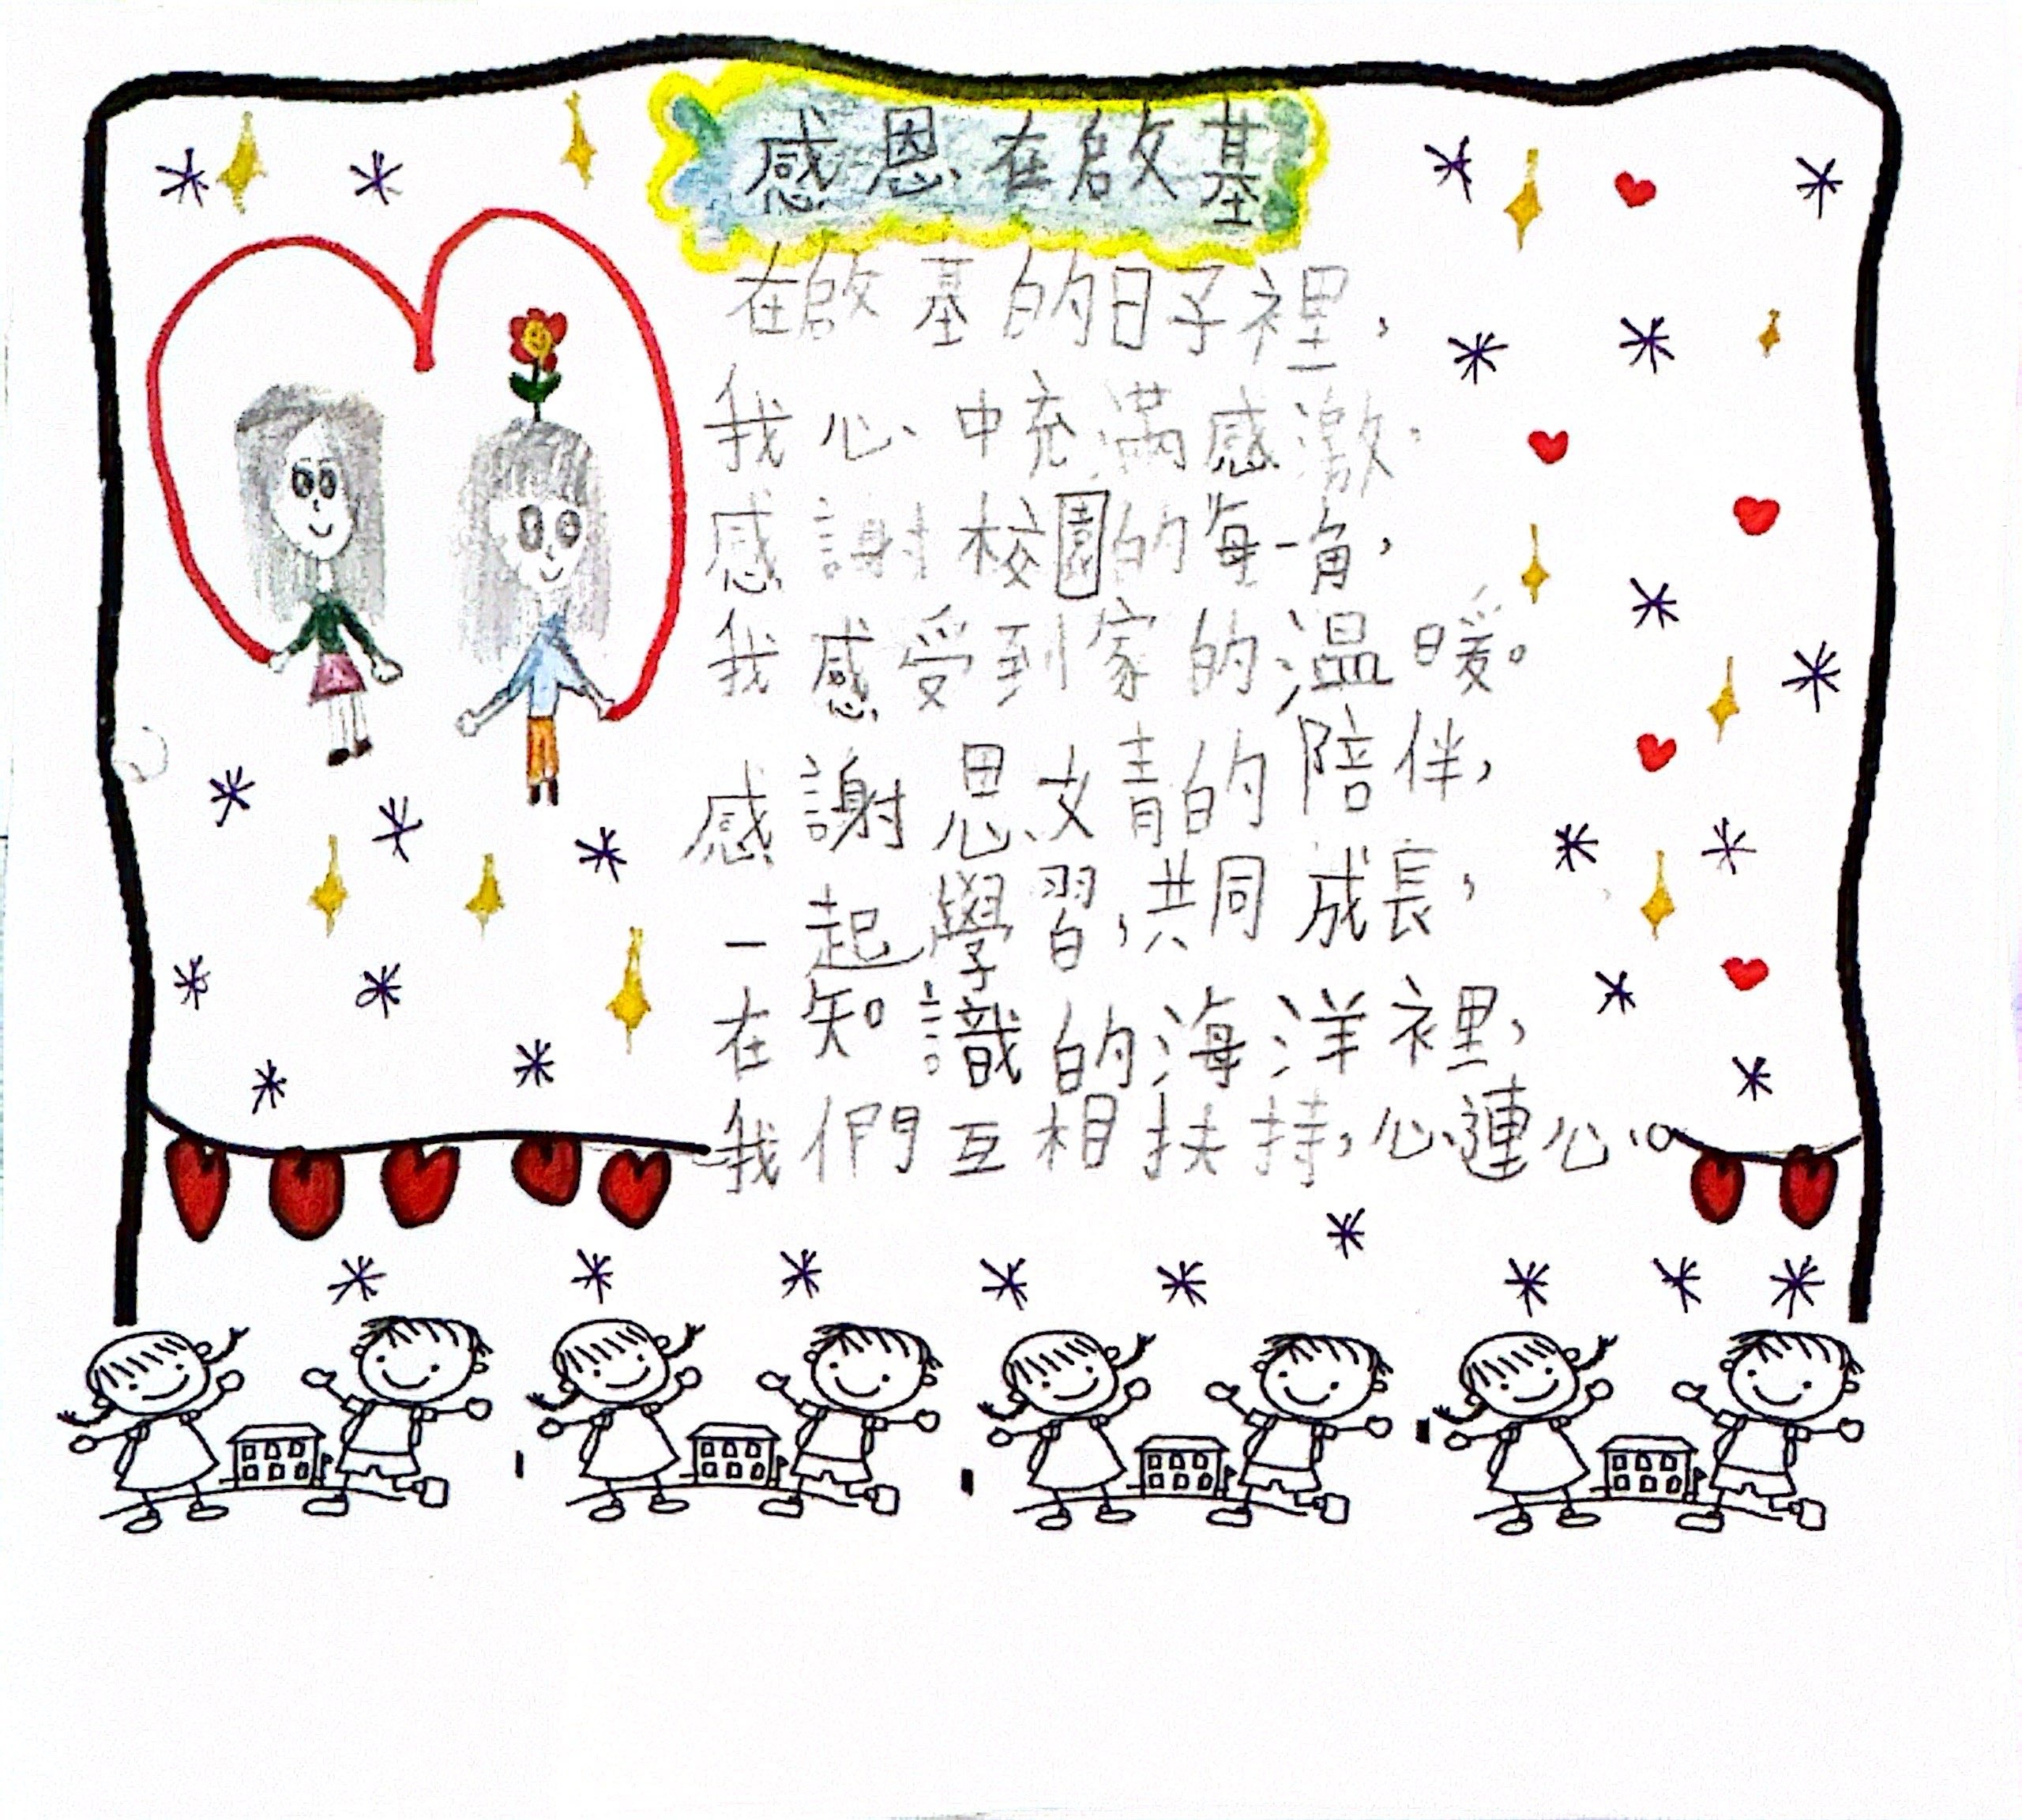 感恩在啟基
在啟基的日子裡，
我心中充滿感激。
感謝校園的每一角，
我感受到家的溫暖。
感謝思文青的陪伴，
一起學習，共同成長，
在知識的海洋裡，
我們互相扶持，心連心。